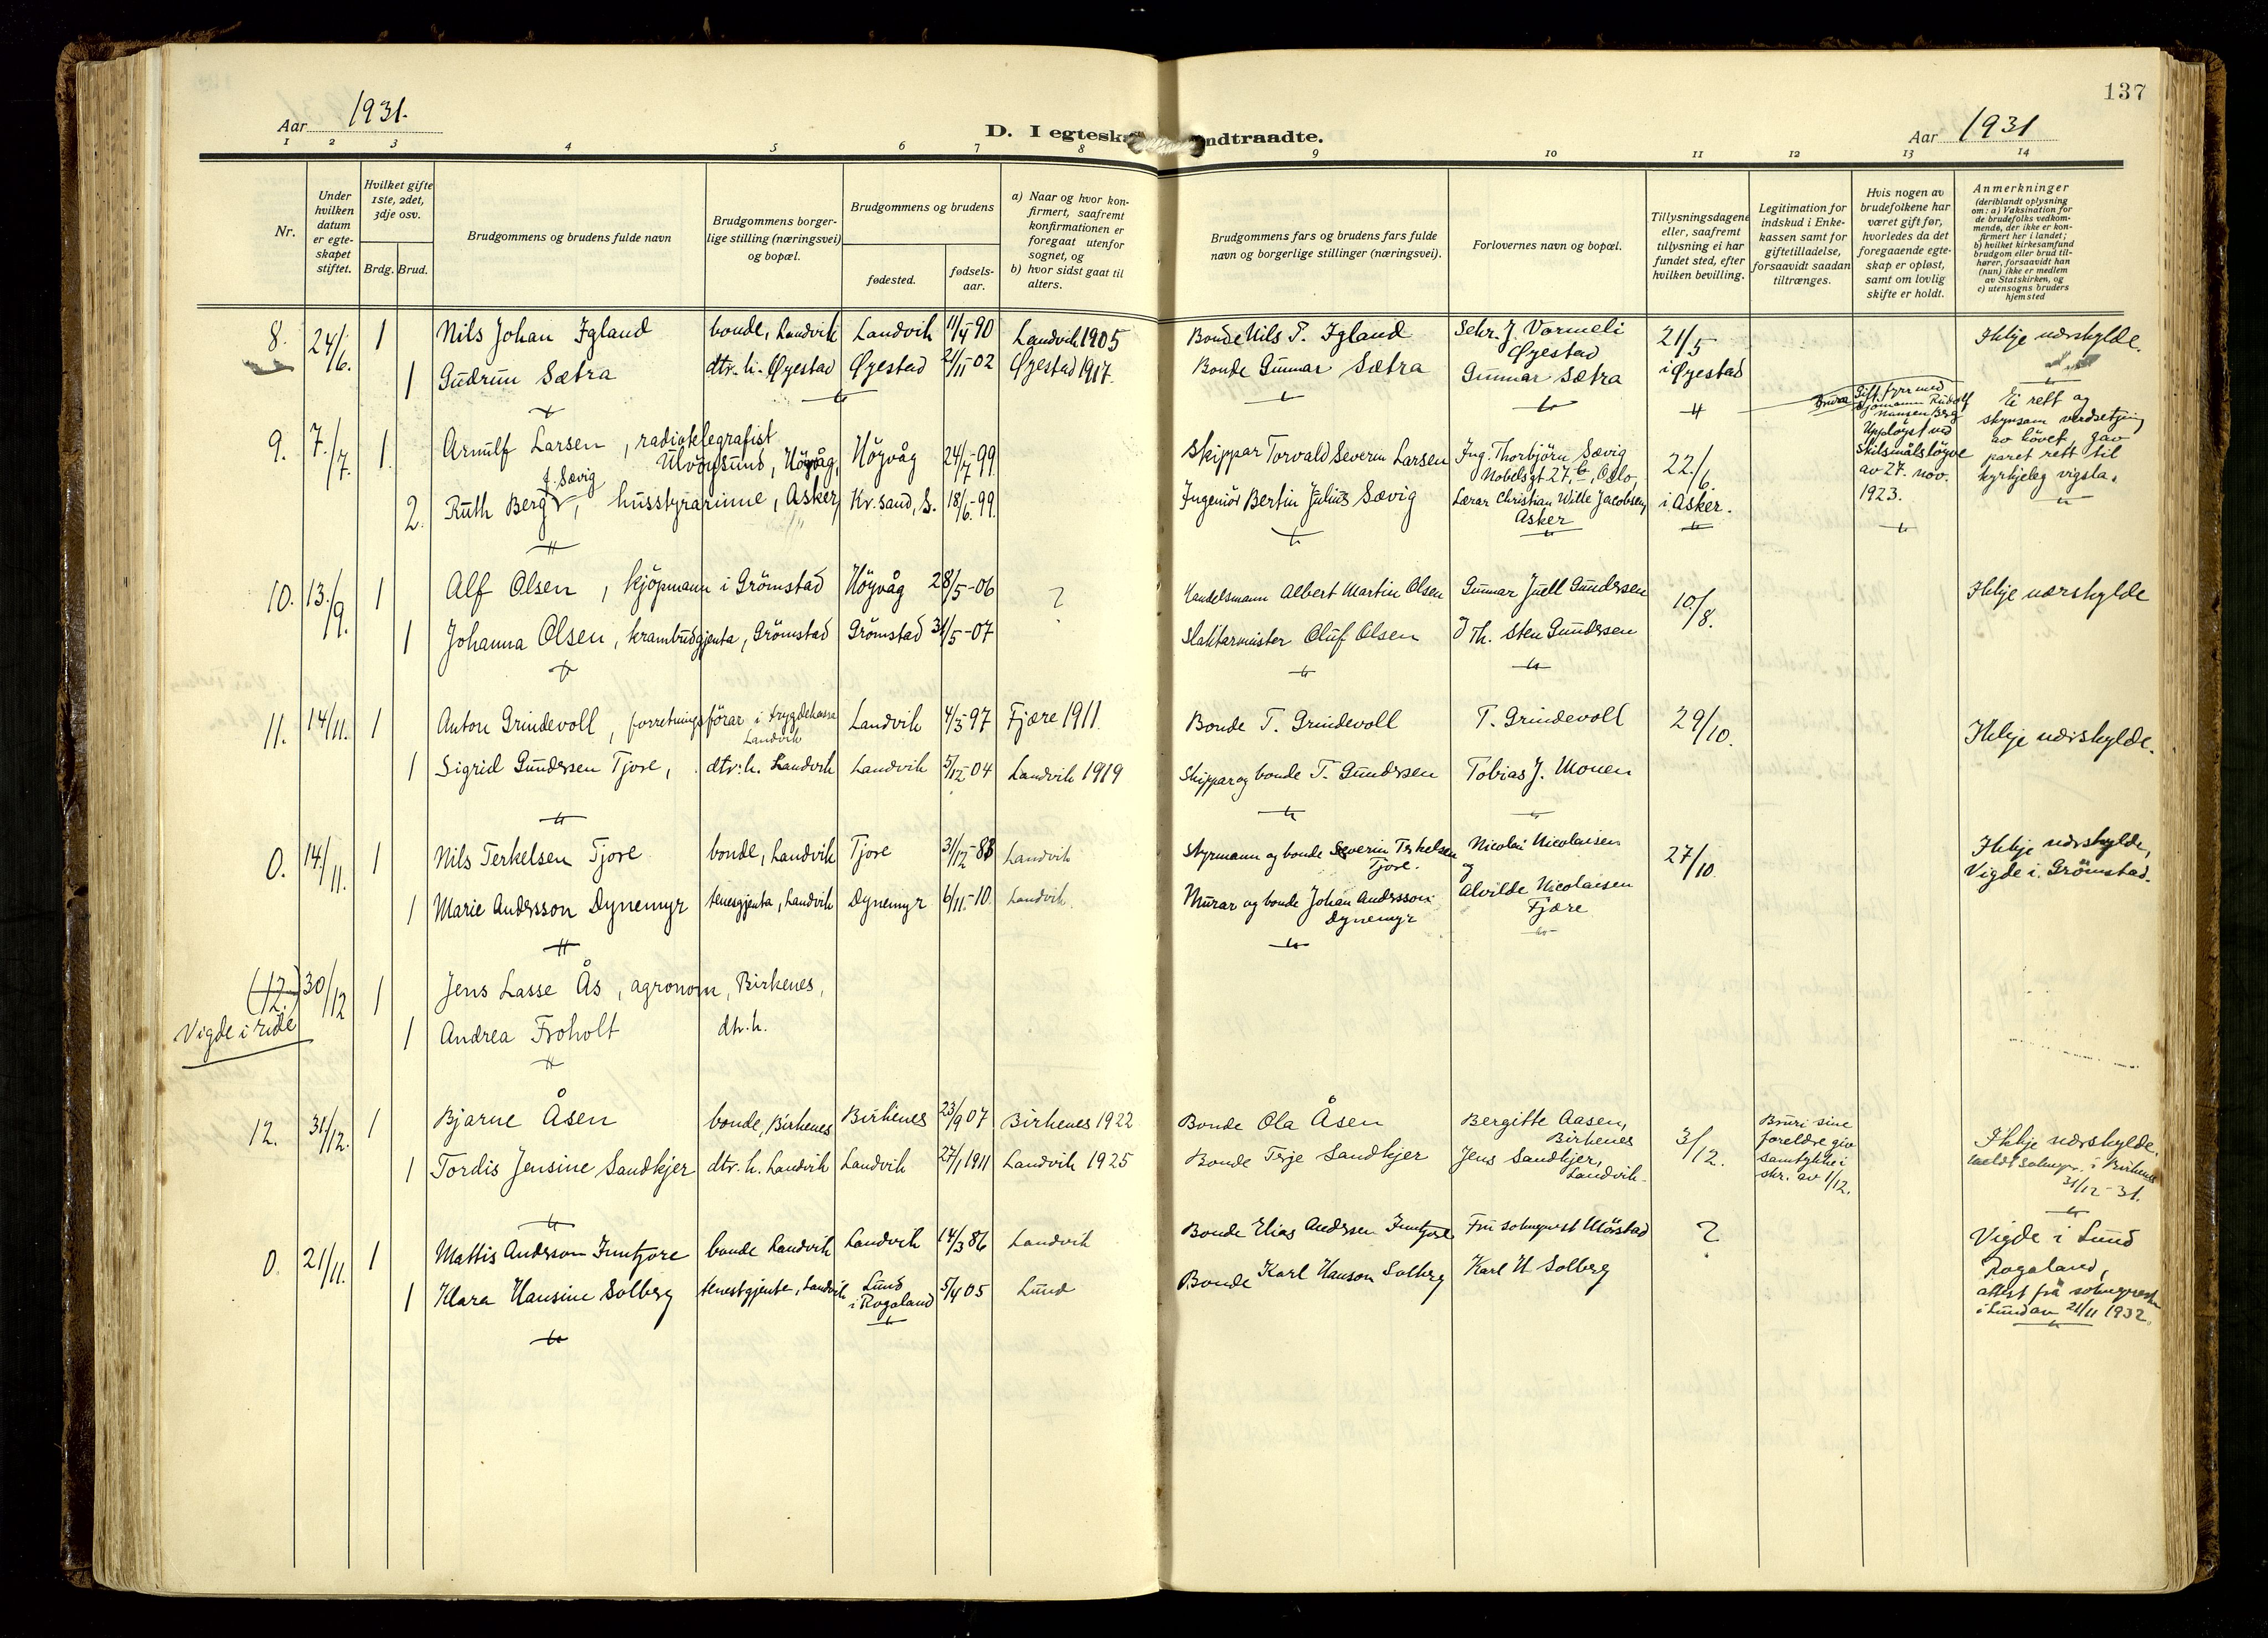 137
Aar 1931.
D. I egteska ndtraadte.
Aar 1931
1 2 3 4 5 6 7 8 9 10 11 12 13 14
Nr.
Under hvilken datum er egte- skapet stiftet.
Hvilket gifte 1ste, 2det, 3dje osv.
Brdg. Brud.
Brudgommens og brudens fulde navn
Brudgommens borger- lige stilling (næringsvei) og bopæl.
Brudgommens og brudens
fødested.
fødsels- aar.
a) Naar og hvor kon- firmert, saafremt konfirmationen er foregaat utenfor sognet, og
b) hvor sidst gaat til alters.
Brudgommens fars og brudens fars fulde navn og borgerlige stillinger (næringsvei).
Forlovernes navn og bopæl.
Tillysningsdagene eller, saafremt tillysning ei har fundet sted, efter hvilken bevilling.
Legitimation for indskud i Enke- kassen samt for giftetilladelse, forsaavidt saadan tiltrænges.
Hvis nogen av brudefolkene har været gift før, hvorledes da det foregaaende egte- skap er opløst, samt om lovlig skifte er holdt.
Anmerkninger
(deriblandt oplysning om: a) Vaksination for de brudefolks vedkom- mende, der ikke er kon- firmert her i landet; b) hvilket kirkesamfund brudgom eller brud til- hører, forsaavidt han (hun) ikke er medlem av Statskirken, og c) utensogns bruders hjemsted
8. 24/6. 1 Nils Johan Igland bonde, Landvik Landvik 11/4 90 Landvik 1905 Bonde Nils T. Igland Sekr. J. Vormeli Øyestad 21/5 Ikkje nærskylde.
1 Gudrun Sætra dtr. h. Øyestad Øyestad 2/11-02 Øyestad 1917. Bonde Gunnar Sætra Gunnar Sætra i Øyestad
9. 7./7. 1 Arnulf Larsen, radiotelegrafist Ulvøysund, Høyvåg, Höyvåg 24/7-99 Skippar Torvald Severin Larsen Ing. Thorbjörn Sævig Nobelsgt 27, b, Oslo, 22/6. Brura Gift fyrr med sjömann Rudolf Hansen Berg Upplöyst ved skilsmålsløyve av 27. nov. 1923. Ei rett og skynsam verdsetjing av hövet, gav paret rett til kyrkjeleg vigsla.
2. Ruth Berg f. Sævig, husstyrarinne, Asker Kr.sand, S. 18/6-99. Ingeniör Bertin Julius Sævig Lærar Christian Wille Jacobsen, Asker i Asker.
10. 13./9. 1 Alf Olsen, kjöpmann i Grömstad Höyvåg 28/5-06 ? Handelsmann Albert Martin Olsen Gunnar Juell Gundersen 10/8. Ikkje nærskylde
1 Johanna Olsen, krambudgjenta, Grömstad Grömstad 31/5-07 Slaktarmeister Oluf Olsen J Th. Sten Gundersen
11. 14/11. 1 Anton Grindevoll, forretningsförar i trygdekassa Landvik Landvik 4/3-97 Fjære 1911. Bonde T. Grindevoll T. Grindevoll 29/10. Ikkje nærskylde.
1 Sigrid Gundersen Tjore, dtr. h. Landvik Landvik 5/12-04 Landvik 1919 Skippar og bonde T. Gundersen Tobias J. Monen
0. 14./11. 1 Nils Terkelsen Tjore bonde, Landvik Tjore 31/12-88 Landvik Styrmann og bonde Severin Terkelsen Tjore. Nicolai Nicolaisen og 27/10. Ikkje nærskylde, Vigde i Grömstad.
1 Marie Andersson Dynemyr tenesgjenta, Landvik Dynemyr 6/11-10. Landvik. Murar og bonde Johan Andersson Dynemyr Alvilde Nicolaisen Fjære
(12.) 30/12 1 Jens Lasse Ås, agronom, Birkenes,
Vigde i Eide 1 Andrea Froholt dtr. h.
12. 31/12. 1 Bjarne Åsen bonde, Birkenes Birkenes 23/9 07 Birkenes 1922 Bonde Ola Åsen Bergitte Aasen, Birkenes 3/12. Bruri sine foreldre giv samtykke i skr. av 1/12. Ikkje nærskylde. meldt soknepr. i Birkenes 31/12-31.
1 Tordis Jensine Sandkjer dtr. h. Landvik Landvik 27/1 1911 Landvik 1925 Bonde Terje Sandkjer Jens Sandkjer, Landvik.
0. 21/11. 1 Mattis Anderson Inntjore bonde Landvik Landvik 14/3 86 Landvik Bonde Elias Andersen Inntjore Fru sokneprest Mörstad ? Vigde i Lund Rogaland, attest frå sokneprest i Lund av 21/11 1932.
1 Klara Hansine Solberg tenestgjente, Landvik Lund i Rogaland 5/4 05 Lund Bonde Karl Hanson Solberg Karl H Solberg